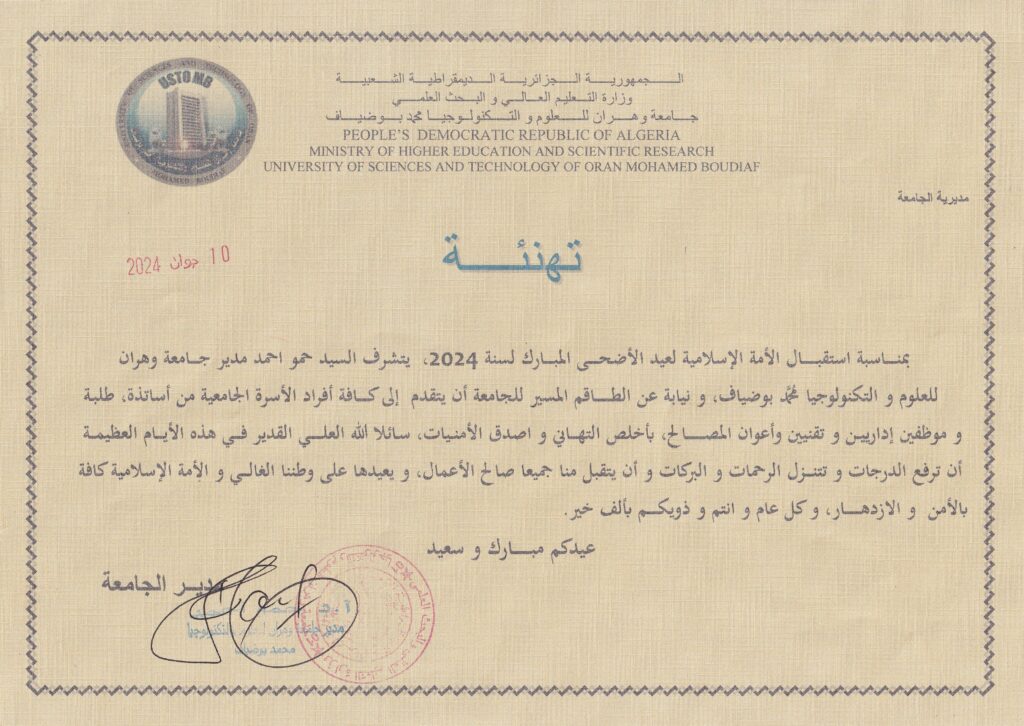 USTO MB
MOHAMED BOUDIAF
الـــجمهوريـــة الـــجزائريـــة الـــديمقراطيـــة الشـــعبيـــة
وزارة التـعليم العـــالـي و البـحث العلمـــي
جـــامعة وهـــران للـــعلوم و التـــكنولـوجيـا محمد بـوضيـاف
PEOPLE'S DEMOCRATIC REPUBLIC OF ALGERIA
MINISTRY OF HIGHER EDUCATION AND SCIENTIFIC RESEARCH
UNIVERSITY OF SCIENCES AND TECHNOLOGY OF ORAN MOHAMED BOUDIAF
مديرية الجامعة
10 جوان 2024
تـهنئـــــة
بمناسبة استقبـــال الأمة الإسلامية لعيد الأضـحى المبـارك لسنة 2024، يتشرف السيد حمو احمد مدير جـامعة وهران
للعلوم و التكنولوجيا محمد بوضياف، و نيابة عن الطـاقم المسير للجامعة أن يتقدم إلى كـافة أفراد الأسرة الجامعية من أساتذة، طلبة
و موظفين إداريـيـن و تقنيين وأعوان المصـــالـح، بأخلص التهاني و اصدق الأمنيـات، سـائلا الله العلـــي القدير فـي هذه الأيـام العظيمـة
أن ترفع الدرجات و تتنـزل الرحمات و البركات و أن يتقبل منا جميعا صـالح الأعمال، و يعيدها على وطننا الغالـي و الأمة الإسلامية كافة
بالأمن و الازدهــار، و كل عام و انتم و ذويكـم بألف خير.
عيدكم مبـــارك و سعيد
مديـر الجامعة
مدير جامعة وهران للعلوم والتكنولوجيا
محمد بوضياف